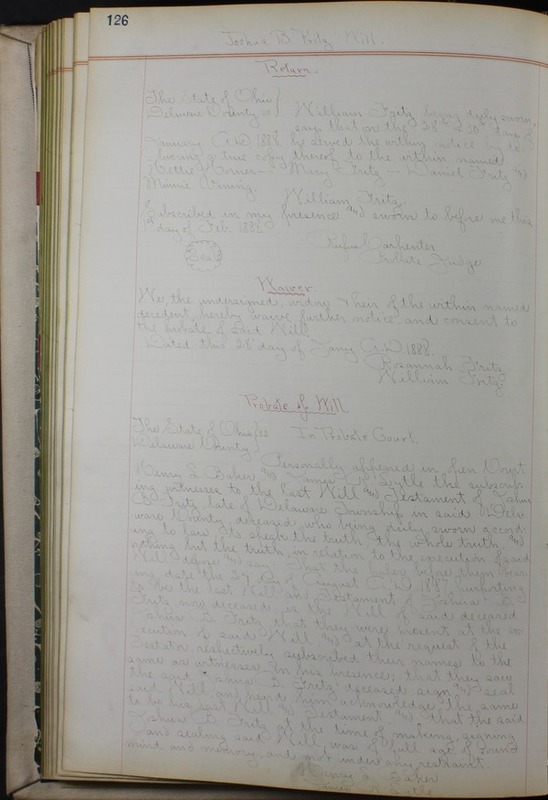 126
Joshua B. Fritz Will.
Return.
The State of Ohio
Delaware County ss William Fritz being duly sworn,
says that on the 28" & 30" day of
January A.D. 1888 he served the within notice by de-
livering a true copy thereof to the within named
Nettie – Mary Fritz – Daniel Fritz and
Minnie
William Fritz.
Subscribed in my presence and sworn to before me this
day of Feb. 1888.
Rufus Carpenter
Seal Probate Judge
Waiver.
We, the undersigned, widow & heir of the within named
decedent, hereby waive further notice and consent to
the probate of said Will.
Dated this 28" day of Jany A.D. 1888.
Rosannah Fritz
William Fritz
Probate of Will.
The State of Ohio ss In Probate Court.
Delaware County
Personally appeared in Open Court
Henry L. Baker and Lytle the subscrib-
ing witnesses to the last Will and Testament of Joshua
B. Fritz late of Delaware Township in said Dela-
ware County, deceased who being duly sworn accord-
ing to law to speak the truth the whole truth and
nothing but the truth, in relation to the execution of said
Will depose and say: That the paper before them bear-
ing date the 27 day of August A.D. 1887, purporting
to be the last Will and Testament of Joshua B.
Fritz now deceased, is the Will of said deceased
Joshua B. Fritz, that they were present at the ex-
ecution of said Will, and at the request of the
testator respectively subscribed their names to the
same as witnesses in his presence; that they saw
the said Joshua B. Fritz deceased sign and seal
said Will, and heard him acknowledge the same
to be his last Will and Testament, and that the said
Joshua B. Fritz at the time of making, signing
and sealing said Will, was of full age of sound
mind and memory, and not under any restraint.
Henry L. Baker
R. Lytle